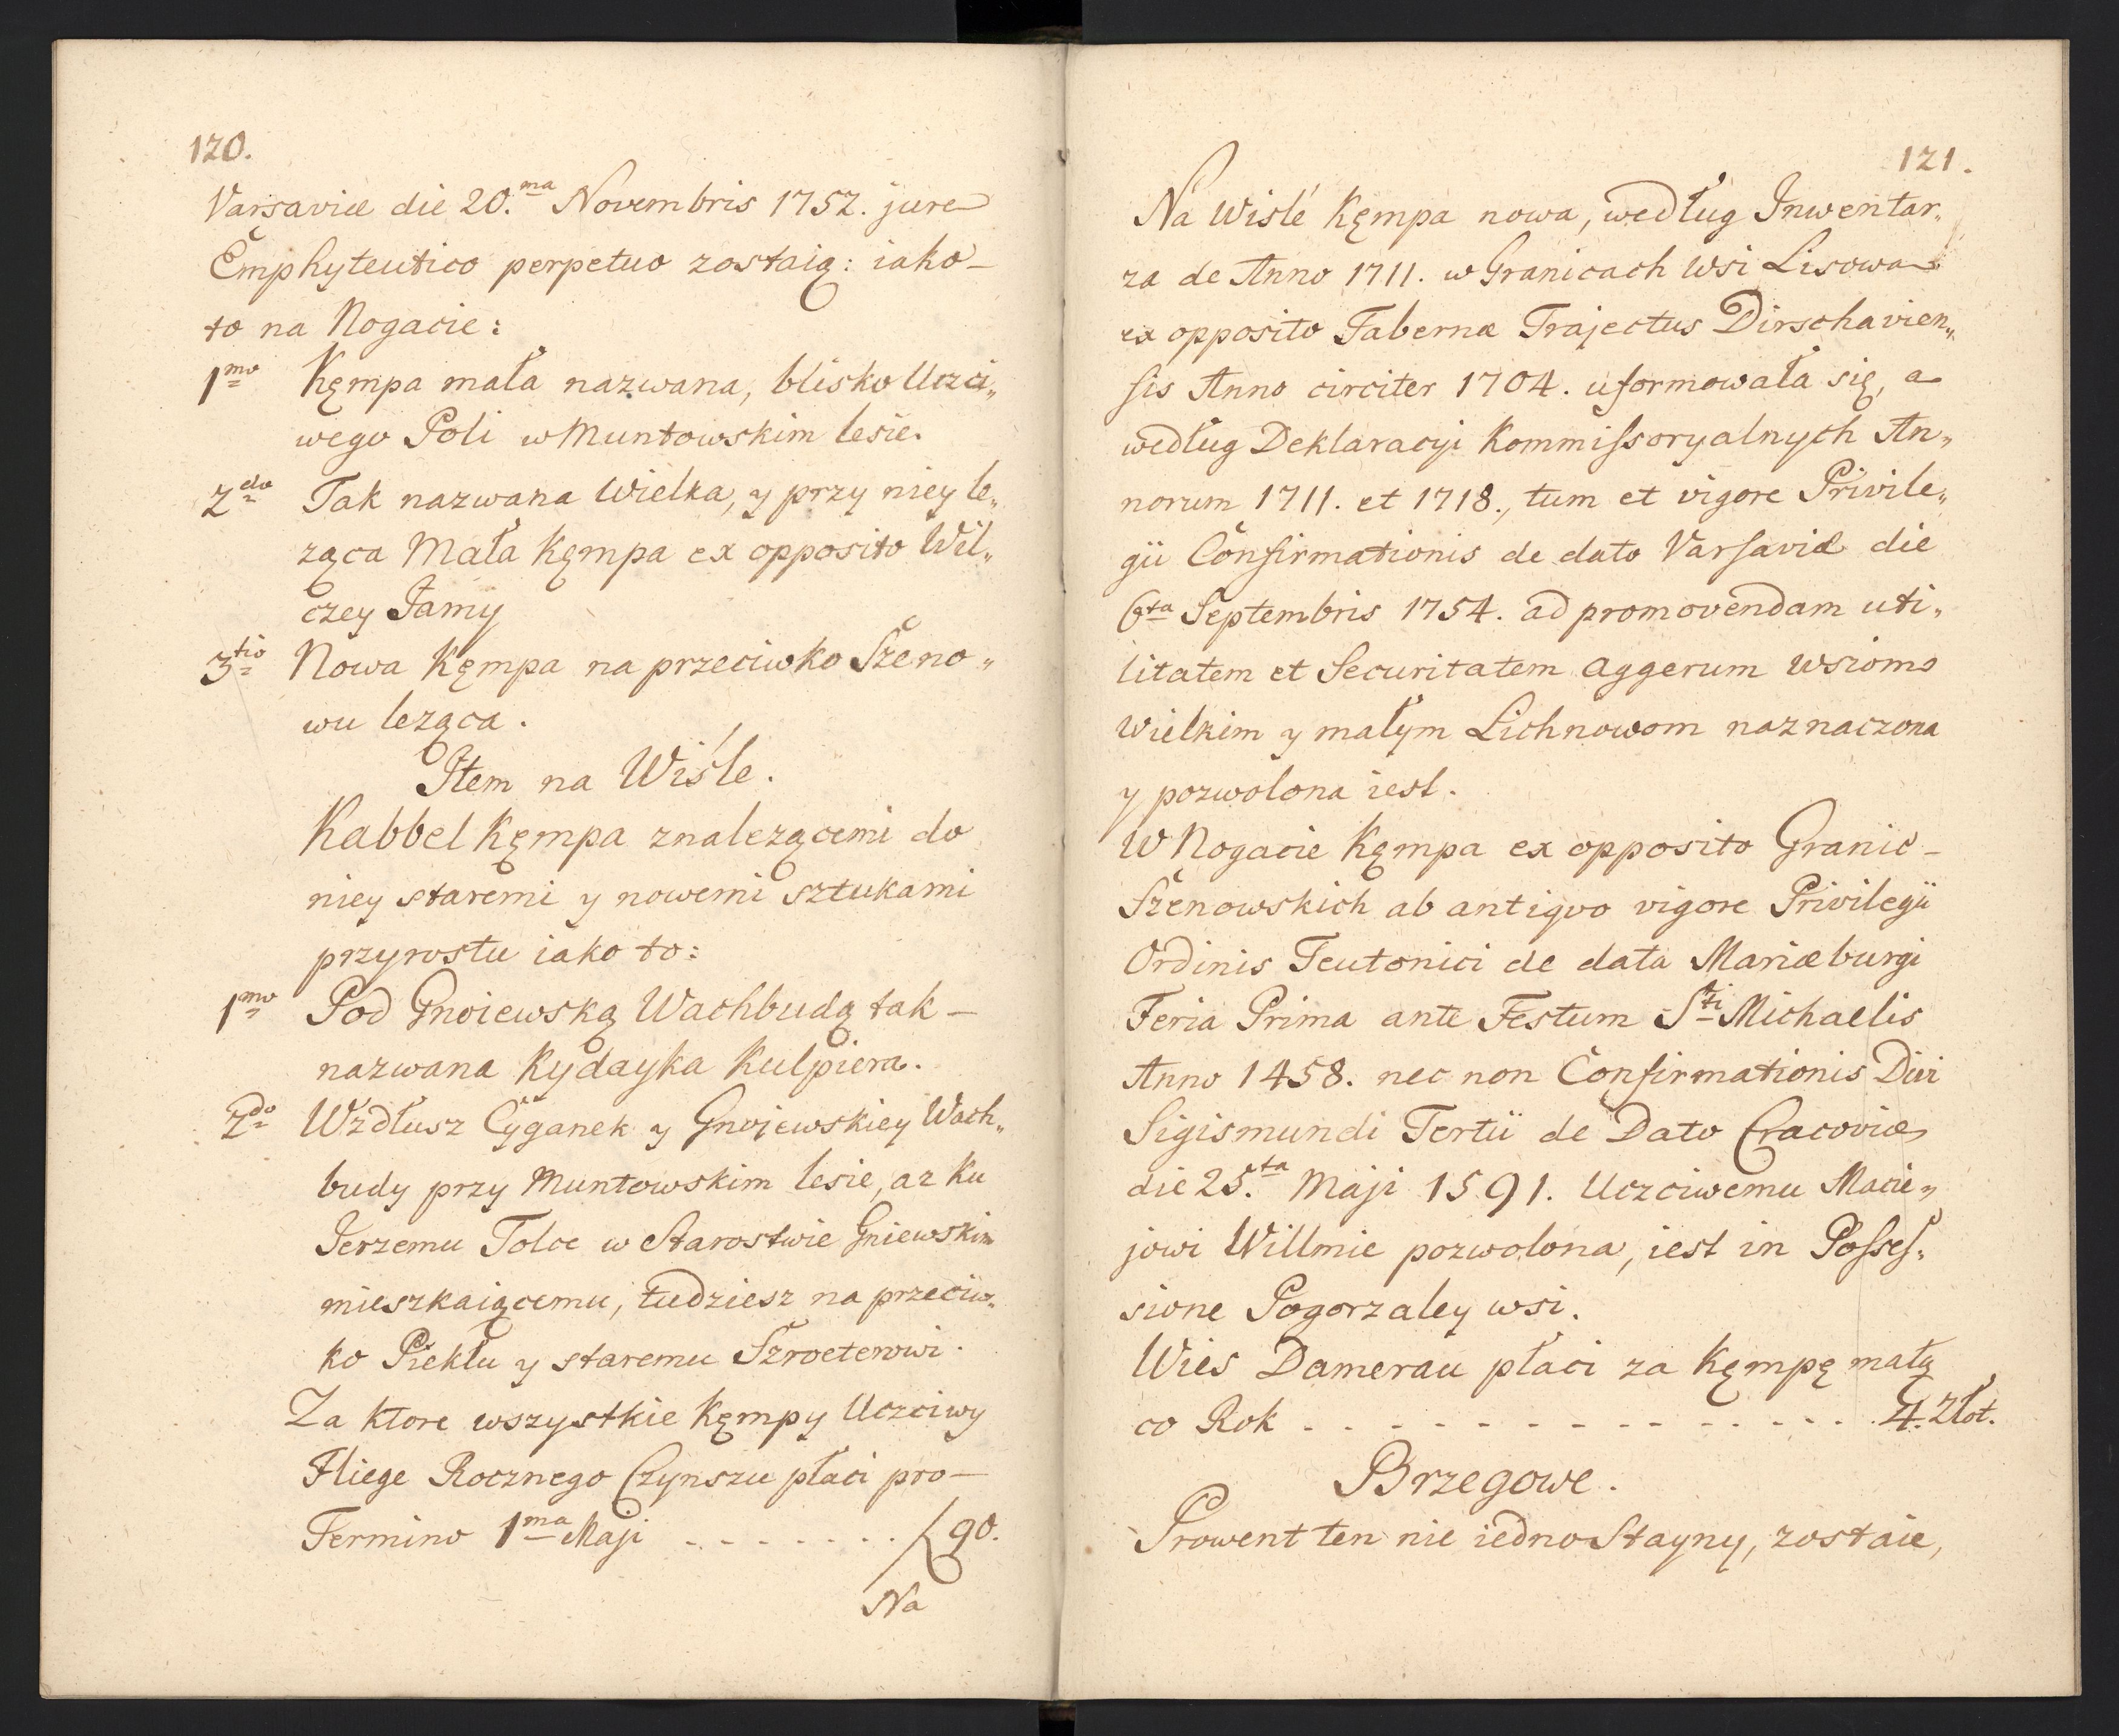 120.
Varsaviæ die 20.ma Novembris 1752. jure
Emphyteutico perpetuo zostaią: iako-
to na Nogacie:
1mo Kęmpa mała nazwana, blisko Uczci„
wego Poli w Muntowskim lesie.
2do Tak nazwana Wielka, y przy niey le„
ząca Mała Kęmpa ex opposito Wil„
czey Jamy
3tio Nowa Kęmpa na przeciwko Szeno„
wu leząca.
Item na Wiśle.
Kabbel Kęmpa znalezącemi do
niey staremi y nowemi sztukami
przyrostu iako to:
1mo Pod Gnoiewską Wachbudą tak-
nazwana Kydayka Kulpiera.
2do Wzdłusz Cyganek y Gnojewskiey Wach„
budy przy Muntowskim lesie, az ku
Jerzemu Tolce w Starostwie Gniewskim
mieszkaiącemu, tudziesz na przeciw„
ko Piekłu y staremu Szroeterowi.
Za ktore wszystkie Kęmpy Uczciwy
Fliege Rocznego Czynszu płaci pro-
Termino 1ma Maji - - - - - - - . f 90.
Na
121.
Na Wiśle Kęmpa nowa, według Inwentar„
za de Anno 1711. w Granicach Wsi Lisowa
ex opposito Tabernæ Trajectus Dirschavien„
sis Anno circiter 1704. uformowała się, a
według Deklaracyi Kommissoryalnych An„
norum 1711. et 1718., tum et vigore Privile„
gii Confirmationis de dato Varsaviæ die
6ta Septembris 1754. ad promovendam uti„
litatem et Securitatem aggerum Wsioms
Wielkim y małym Lichnowom naznaczona
y pozwolona iest.
W Nogacie Kęmpa ex opposito Granic-
Szenowskich ab antiqvo vigore Privilegii
Ordinis Teutonici de data Mariæburgi
Feria Prima ante Festum Sti Michaelis
Anno 1458. nec non Confirmationis Divi
Sigismundi Tertii de Dato Cracoviæ
die 25.ta Maji 1591. Uczciwemu Macie„
jowi Willmie pozwolona, iest in Posses„
sione Pogorzaley wsi.
Wies Damerau płaci za Kęmpę małą
co Rok - - - - - - - - - - - - - . 4. Złot.
Brzegowe.
Prowent ten nie iednostayny, zostaie,